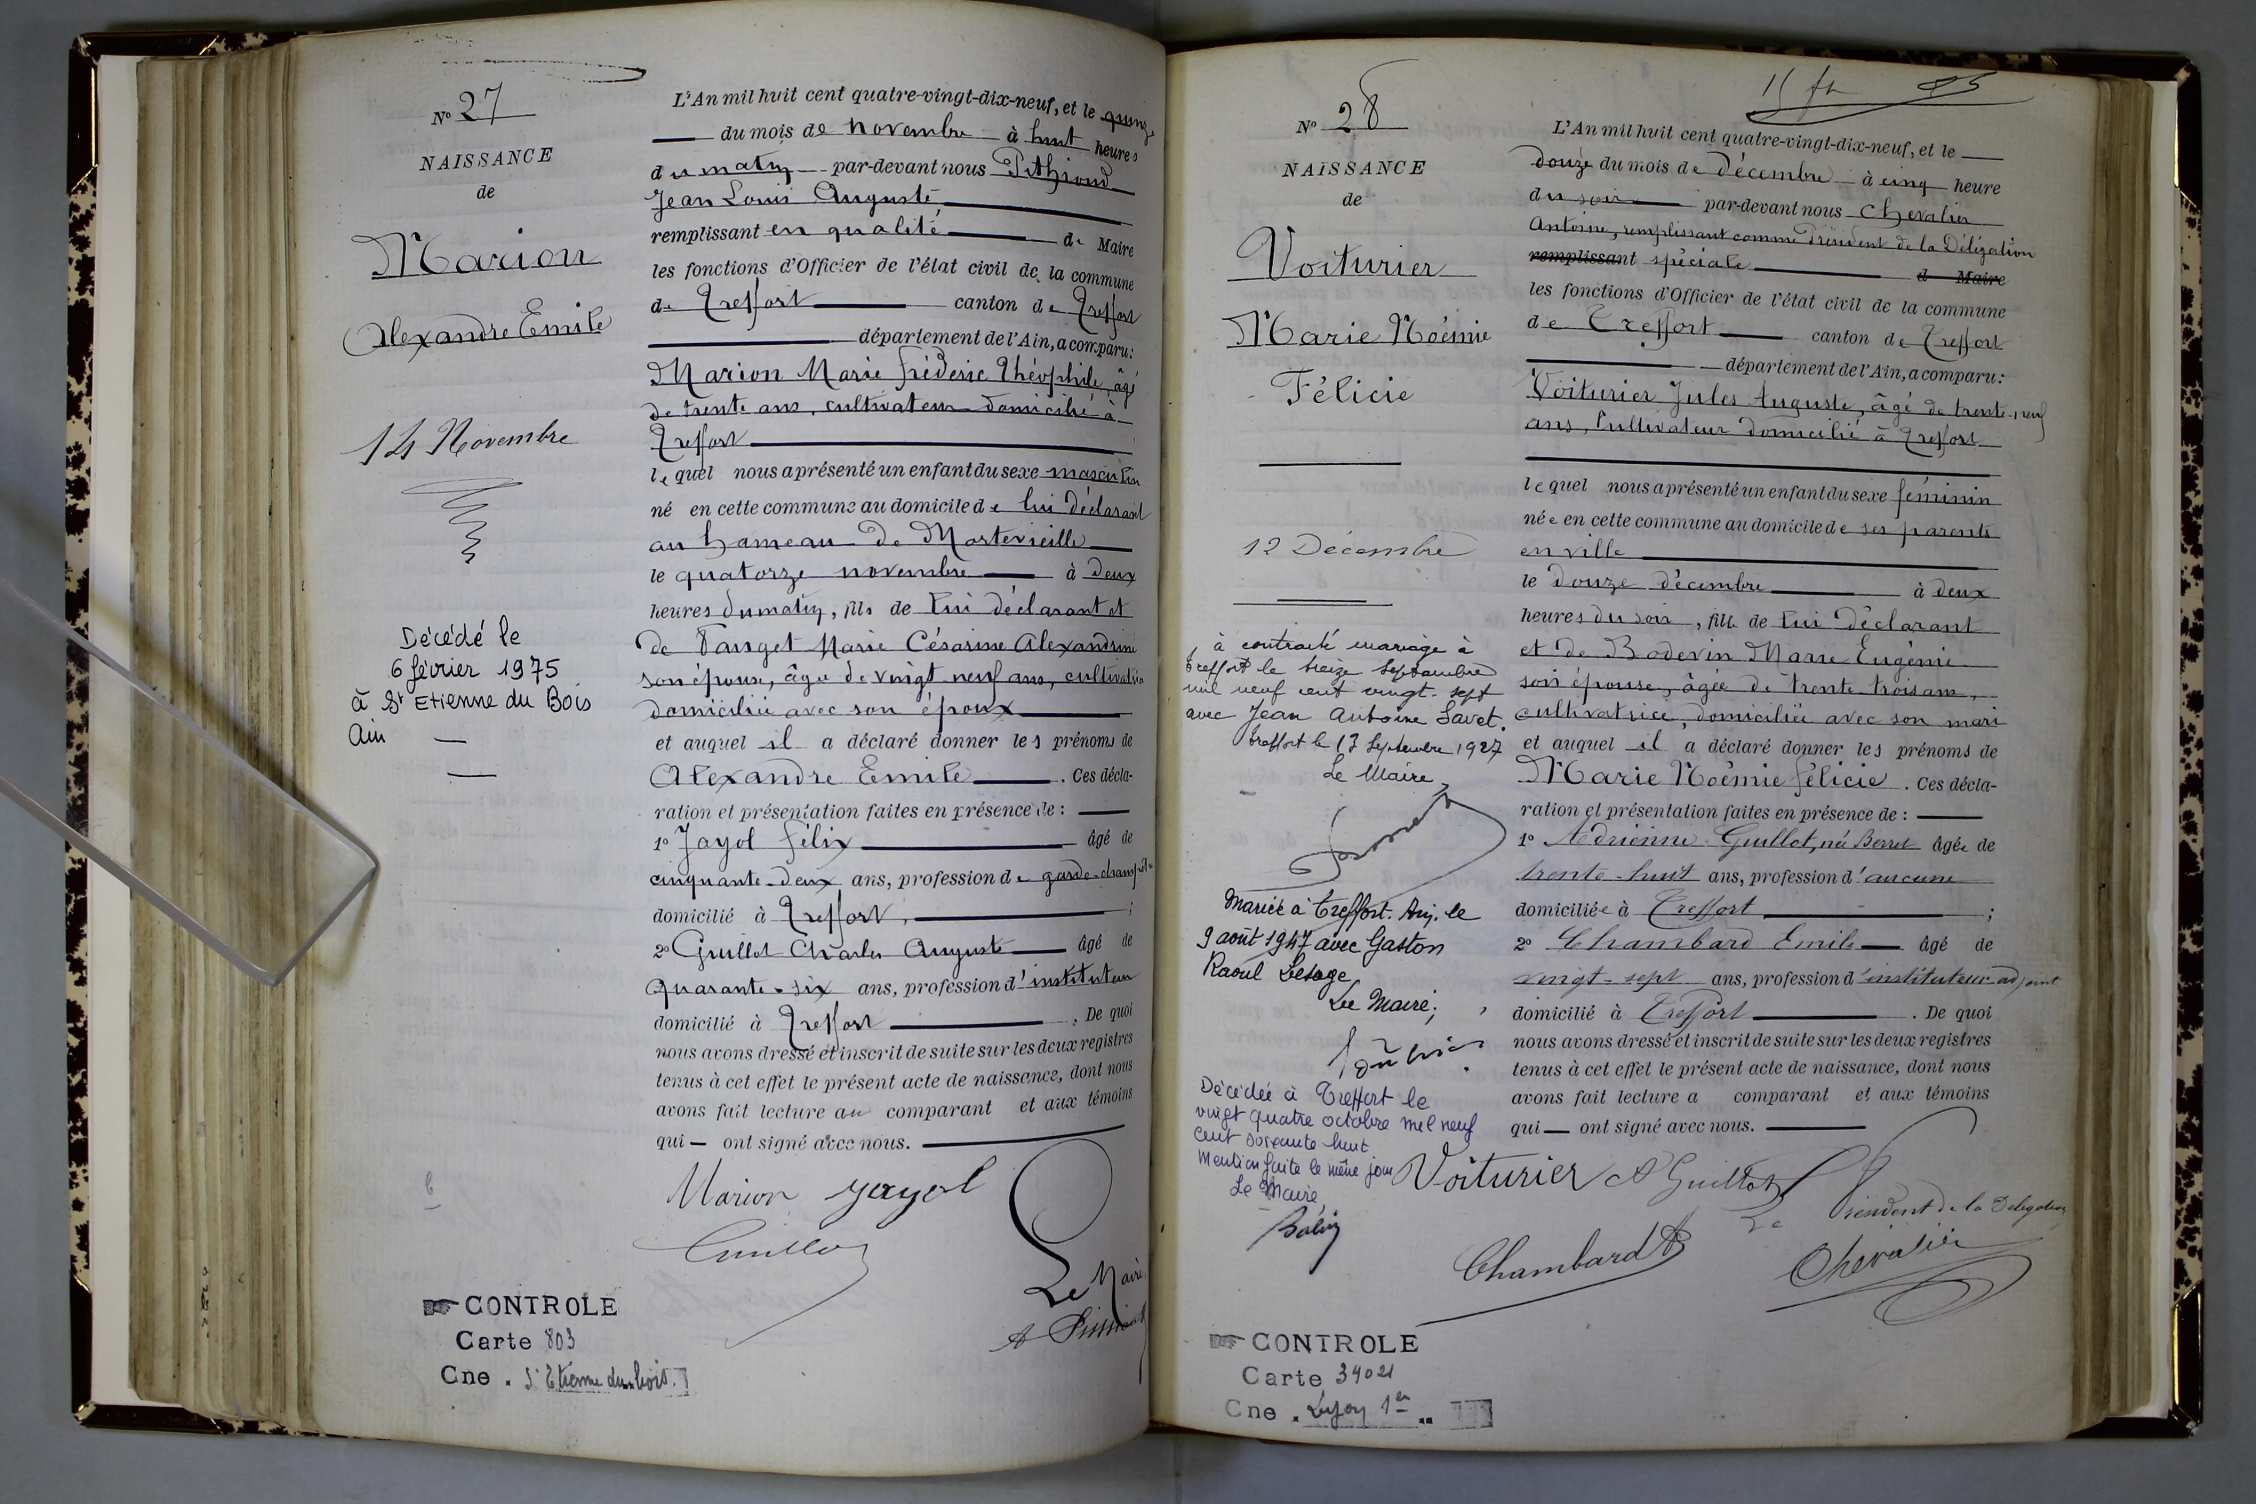 N° 27
NAISSANCE
de
Marion
Alexandre Emile
14 Novembre
Décédé le
6 février 1975
à St Etienne du Bois
Ain
L'An mil huit cent quatre-vingt-dix-neuf, et le quinze
du mois de novembre à huit heures
du matin par-devant nous Pithioud
Jean Louis Auguste
remplissant en qualité de Maire
les fonctions d'Officier de l'état civil de la commune
de Treffort canton de Treffort
département de l'Ain, a comparu:
Marion Marie Fréderic Théophile, âgé
de trente ans, cultivateur domicilié à
Treffort
lequel nous a présenté un enfant du sexe masculin
né en cette commune au domicile de lui déclarant
au hameau de Montevieille
le quatorze novembre à deux
heures du matin, fils de lui déclarant et
de Tanget Marie Césarine Alexandrine
son épouse, âgée de vingt neuf ans, cultivatrice
domiciliée avec son époux
et auquel il a déclaré donner les prénoms de
Alexandre Emile. Ces décla-
ration et présentation faites en présence de :
1° Jayol Félix âgé de
cinquante-deux ans, profession de garde-champêtre
domicilié à Treffort, ;
2° Guillot Charles Auguste âgé de
quarante-six ans, profession d'instituteur
domicilié à Treffort. De quoi
nous avons dressé et inscrit de suite sur les deux registres
tenus à cet effet le présent acte de naissance, dont nous
avons fait lecture au comparant et aux témoins
qui — ont signé avec nous.
Marion Jayol
Guillot
Le Maire
CONTROLE
Carte 803
Cne. St Etienne du bois.
11 fh 85
N° 28
NAISSANCE
de
Voiturier
Marie Noémie
Félicie
12 Décembre
à contracté mariage à
Treffort le treize Septembre
mil neuf cent vingt-sept
avec Jean Antoine Savet.
Treffort le 13 Septembre 1927
Le Maire
Mariée à Treffort. Ain. le
9 août 1947 avec Gaston
Raoul Lesage
Le Maire;
Décédée à Treffort le
vingt quatre octobre mil neuf
cent soixante huit
Mention faite le même jour
Le Maire
L'An mil huit cent quatre-vingt-dix-neuf, et le
douze du mois de Décembre à cinq heure
du soir par-devant nous Chevalier
Antoine, remplissant comme Président de la Délégation
remplissant spéciale de Maire
les fonctions d'Officier de l'état civil de la commune
de Treffort canton de Treffort
département de l'Ain, a comparu:
Voiturier Jules Auguste, âgé de trente-neuf
ans, Cultivateur domicilié à Treffort
lequel nous a présenté un enfant du sexe féminin
née en cette commune au domicile de ses parents
en ville
le douze décembre à deux
heures du soir, fille de lui déclarant
et de Bodevin Marie Eugénie
son épouse, âgée de trente trois ans,
cultivatrice, domiciliée avec son mari
et auquel il a déclaré donner les prénoms de
Marie Noémie Félicie. Ces décla-
ration et présentation faites en présence de :
1° Adrienne Guillot, née Borret âgée de
trente-huit ans, profession d'aucune
domiciliée à Treffort ;
2° Chambard Emile âgé de
vingt-sept ans, profession d'instituteur adjoint
domicilié à Treffort. De quoi
nous avons dressé et inscrit de suite sur les deux registres
tenus à cet effet le présent acte de naissance, dont nous
avons fait lecture a comparant et aux témoins
qui — ont signé avec nous.
Voiturier A Guillot
Le Président de la Délégation
Chambard Chevalier
CONTROLE
Carte 34021
Cne. Lyon 1er